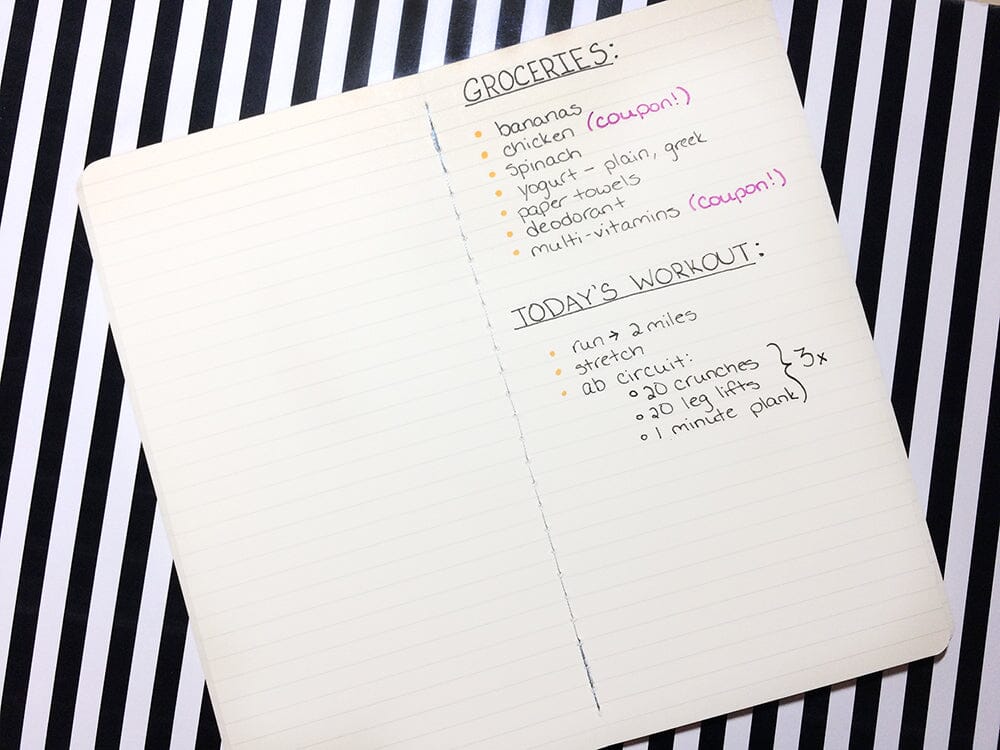 GROCERIES:
bananas
chicken (coupon!)
spinach
yogurt - plain, greek
paper towels
deodorant
multi-vitamins (coupon!)
TODAY'S WORKOUT:
run → 2 miles
stretch
ab circuit:
20 crunches
20 leg lifts } 3x
1 minute plank